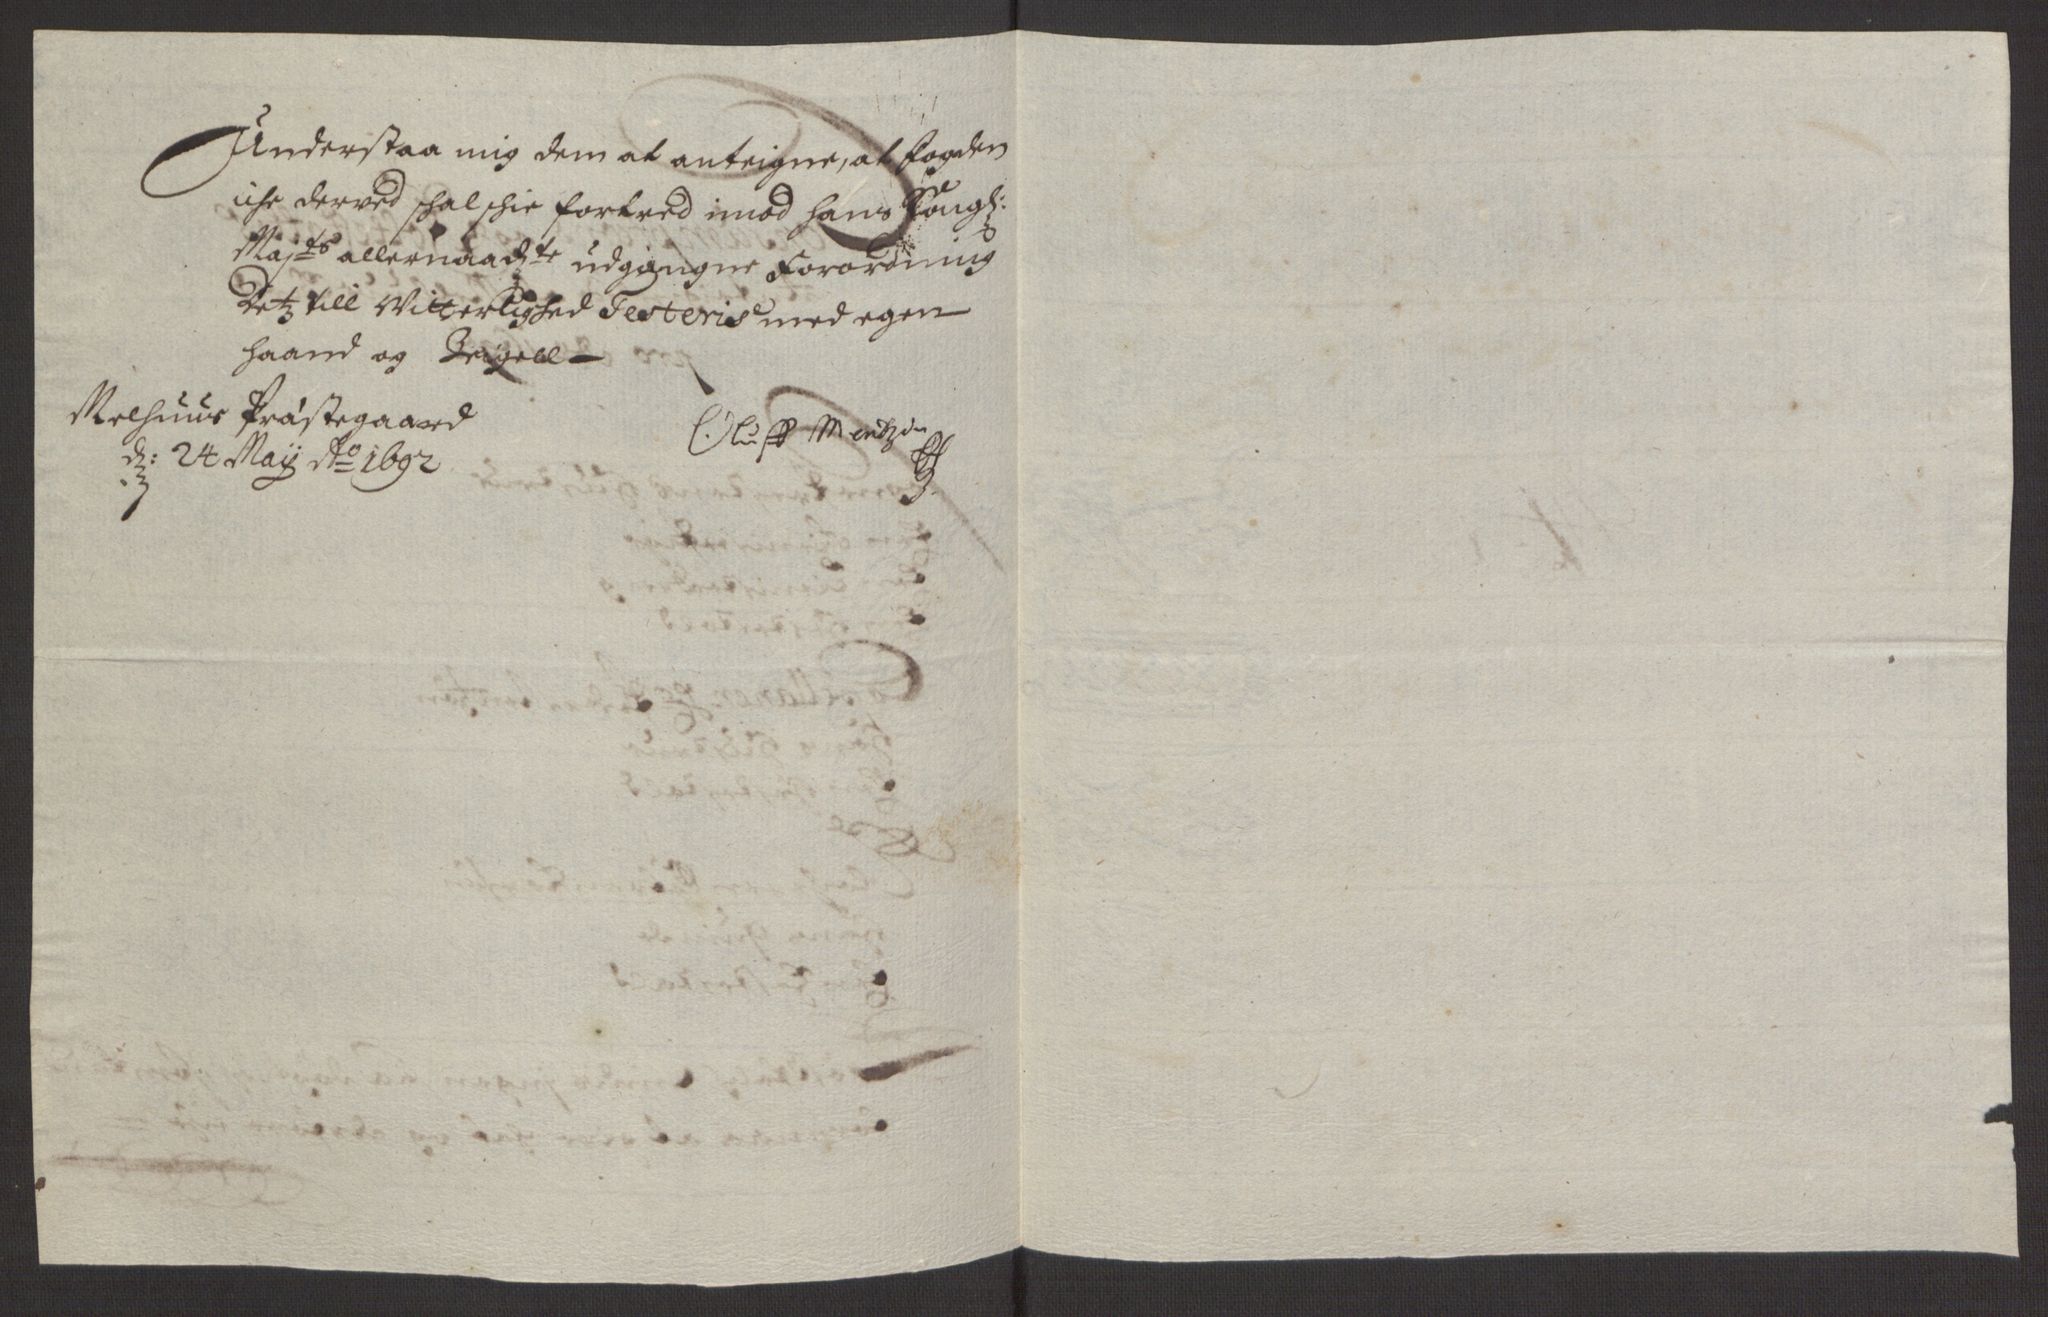 Understaa mig dem at anteigne, at fogden
iche derved schal schie fortred imod hans Kongl:
Maj:ts allernaadste udgangne Forordning
Detz till Witterlighed Testeris med egen
haand og Zeigell
Melhuus Præstegaard
d: 24 Maij Ao 1692
Oluff Mentzen